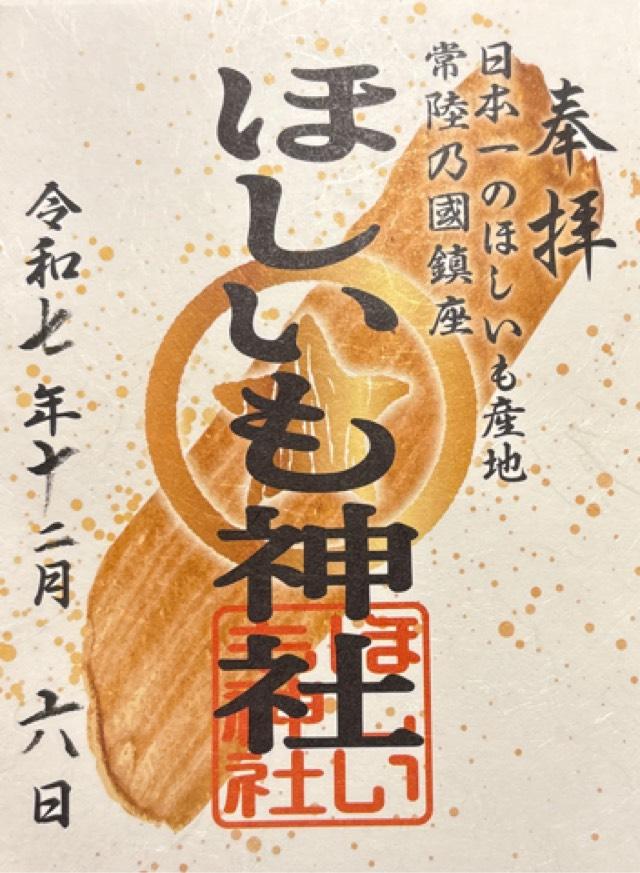 奉拝
日本一のほしいも産地
常陸乃國鎮座
ほしいも神社
ほしい
も神社
令和七年十二月 六日